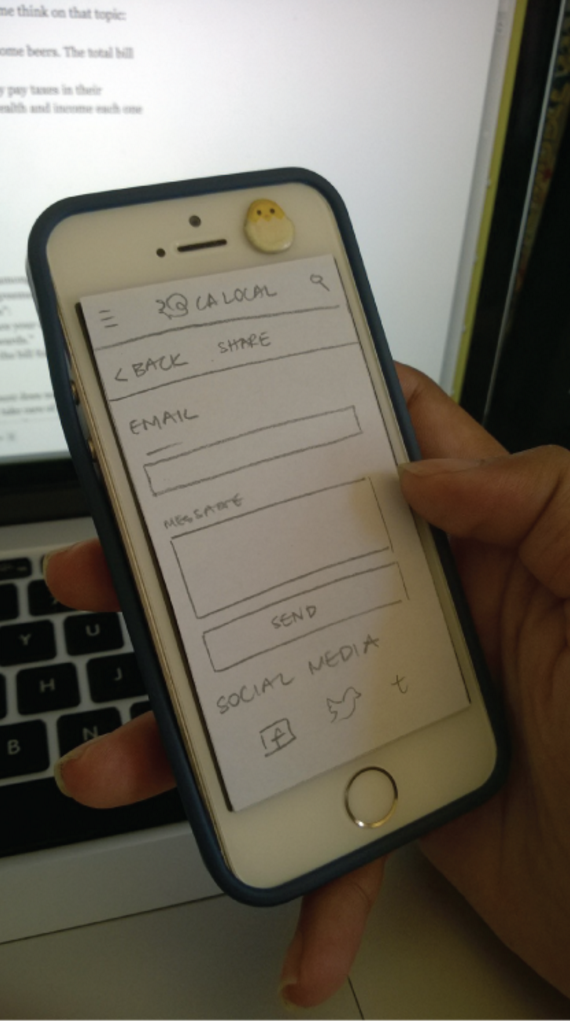 me think on that topic:
ome beers. The total bill
y pay taxes in their
ealth and income each one
CA LOCAL
< BACK SHARE
EMAIL
MESSAGE
SEND
SOCIAL MEDIA
f t
Y U
H J
B N